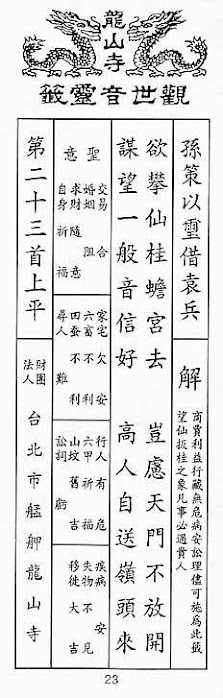 龍山寺
觀世音靈籤
孫策以璽借袁兵
解
商賈利益行藏無危病安訟理儘可施為此籤
望仙扳桂之象凡事必遇貴人
欲攀仙桂蟾宮去 豈慮天門不放開
謀望一般音信好 高人自送嶺頭來
聖意
交易 合
婚姻 阻
求財隨意
自身祈福
家宅欠安
六畜不利
田蚕不利
尋人 難
行人有危
六甲祈福
山坟舊吉
訟詞 虧
疾病 安
失物不見
移徙大吉
第二十三首上平
財團法人 台北市艋舺龍山寺
23